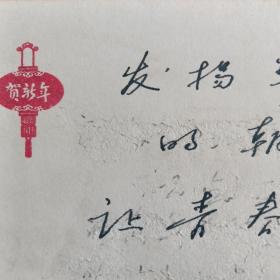 贺新年
发扬
的朝
让青春